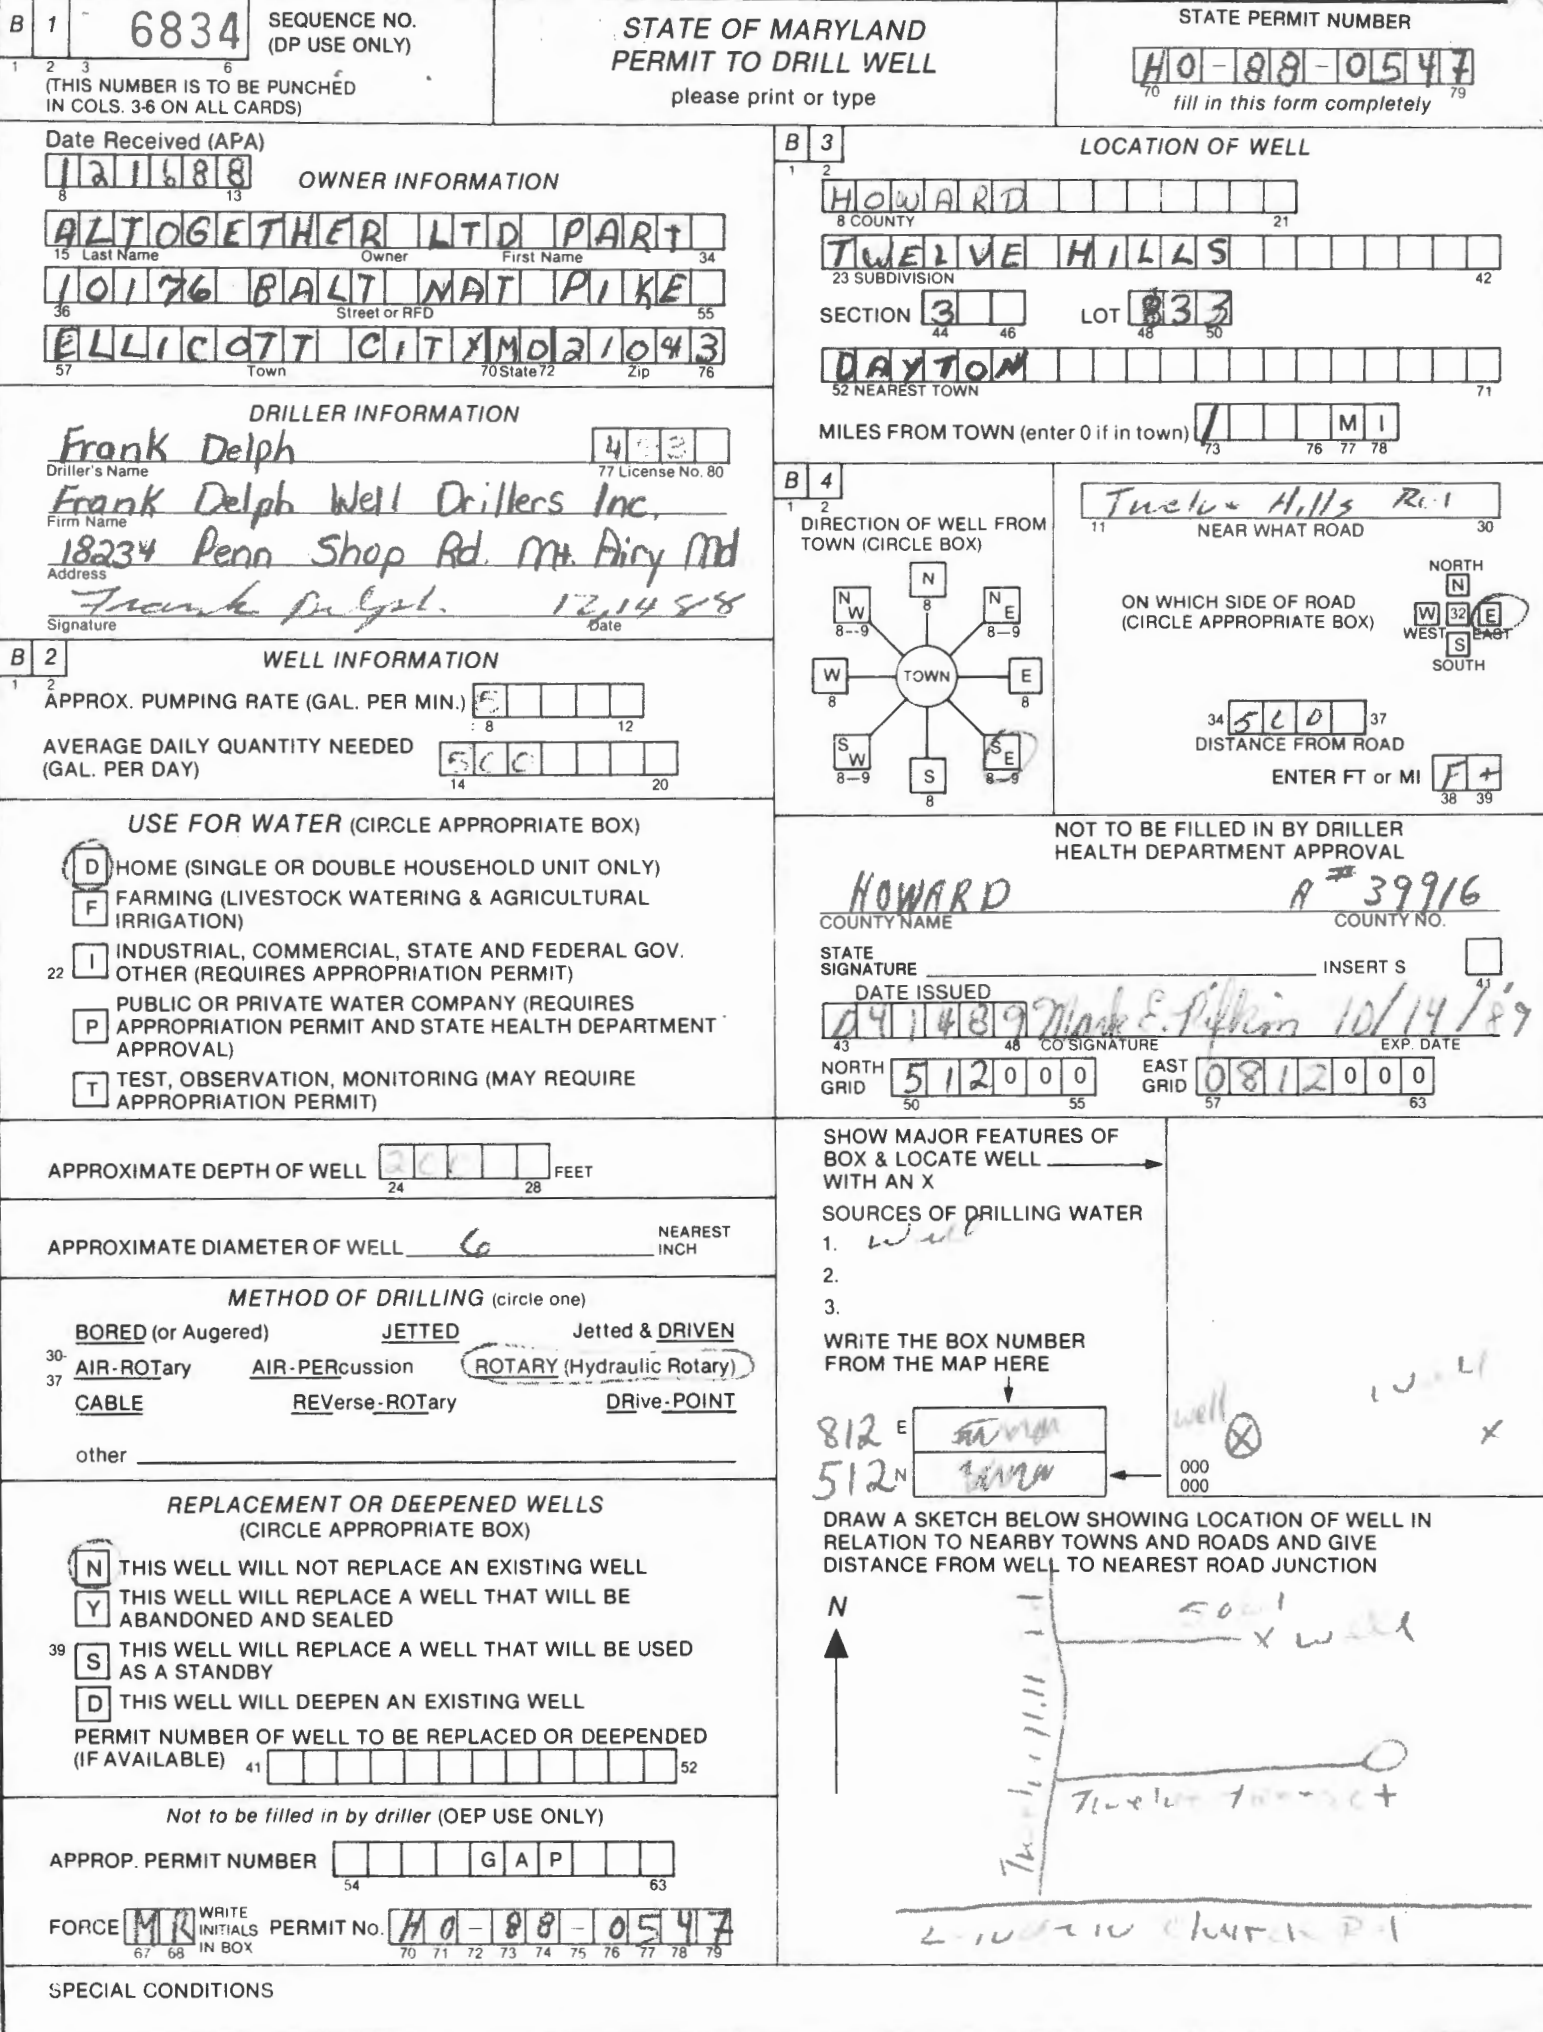 B 1 6834 SEQUENCE NO.
(DP USE ONLY)
1 2 3 6
(THIS NUMBER IS TO BE PUNCHED
IN COLS. 3-6 ON ALL CARDS)
STATE OF MARYLAND
PERMIT TO DRILL WELL
please print or type
STATE PERMIT NUMBER
HO-88-0547
70 79
fill in this form completely
Date Received (APA)
121688
8 13
OWNER INFORMATION
ALTOGETHER LTD PART
15 Last Name Owner First Name 34
10176 BALT NAT PIKE
36 Street or RFD 55
ELLICOTT CITY MD 21043
57 Town 70 State 72 Zip 76
DRILLER INFORMATION
Frank Delph 4 3
Driller's Name 77 License No. 80
Frank Delph Well Drillers Inc.
Firm Name
18234 Penn Shop Rd. Mt. Airy Md
Address
Frank Delph 12,14 88
Signature Date
B 2 WELL INFORMATION
1 2
APPROX. PUMPING RATE (GAL. PER MIN.) 5
8 12
AVERAGE DAILY QUANTITY NEEDED
(GAL. PER DAY) 500
14 20
USE FOR WATER (CIRCLE APPROPRIATE BOX)
D HOME (SINGLE OR DOUBLE HOUSEHOLD UNIT ONLY)
F FARMING (LIVESTOCK WATERING & AGRICULTURAL
IRRIGATION)
22 I INDUSTRIAL, COMMERCIAL, STATE AND FEDERAL GOV.
OTHER (REQUIRES APPROPRIATION PERMIT)
P PUBLIC OR PRIVATE WATER COMPANY (REQUIRES
APPROPRIATION PERMIT AND STATE HEALTH DEPARTMENT
APPROVAL)
T TEST, OBSERVATION, MONITORING (MAY REQUIRE
APPROPRIATION PERMIT)
APPROXIMATE DEPTH OF WELL 200 FEET
24 28
APPROXIMATE DIAMETER OF WELL 6 NEAREST
INCH
METHOD OF DRILLING (circle one)
BORED (or Augered) JETTED Jetted & DRIVEN
30-
37
AIR-ROTary AIR-PERcussion ROTARY (Hydraulic Rotary)
CABLE REVerse-ROTary DRive-POINT
other
REPLACEMENT OR DEEPENED WELLS
(CIRCLE APPROPRIATE BOX)
N THIS WELL WILL NOT REPLACE AN EXISTING WELL
Y THIS WELL WILL REPLACE A WELL THAT WILL BE
ABANDONED AND SEALED
39 S THIS WELL WILL REPLACE A WELL THAT WILL BE USED
AS A STANDBY
D THIS WELL WILL DEEPEN AN EXISTING WELL
PERMIT NUMBER OF WELL TO BE REPLACED OR DEEPENDED
(IF AVAILABLE) 41 52
Not to be filled in by driller (OEP USE ONLY)
APPROP. PERMIT NUMBER G A P
54 63
FORCE MR WRITE
INITIALS
IN BOX
PERMIT No. HO-88-0547
67 68 70 71 72 73 74 75 76 77 78 79
SPECIAL CONDITIONS
B 3 LOCATION OF WELL
1 2
HOWARD
8 COUNTY 21
TWELVE HILLS
23 SUBDIVISION 42
SECTION 3 LOT 33
44 46 48 50
DAYTON
52 NEAREST TOWN 71
MILES FROM TOWN (enter 0 if in town) 1 M I
73 76 77 78
B 4
1 2
DIRECTION OF WELL FROM
TOWN (CIRCLE BOX)
N
8
N W N E
8--9 8--9
W TOWN E
8 8
S W S E
8--9 8--9
S
8
Twelve Hills Rd
11 NEAR WHAT ROAD 30
ON WHICH SIDE OF ROAD
(CIRCLE APPROPRIATE BOX)
NORTH
N
W 32 E
WEST EAST
S
SOUTH
34 500 37
DISTANCE FROM ROAD
ENTER FT or MI Ft
38 39
NOT TO BE FILLED IN BY DRILLER
HEALTH DEPARTMENT APPROVAL
HOWARD A # 39916
COUNTY NAME COUNTY NO.
STATE
SIGNATURE INSERT S
41
DATE ISSUED
041489 Mark E. Rifkin 10/14/89
43 48 CO SIGNATURE EXP. DATE
NORTH
GRID 512000
50 55
EAST
GRID 0812000
57 63
SHOW MAJOR FEATURES OF
BOX & LOCATE WELL
WITH AN X
SOURCES OF DRILLING WATER
1. Well
2.
3.
WRITE THE BOX NUMBER
FROM THE MAP HERE
812 E
512 N
well X
well
x
000
000
DRAW A SKETCH BELOW SHOWING LOCATION OF WELL IN
RELATION TO NEARBY TOWNS AND ROADS AND GIVE
DISTANCE FROM WELL TO NEAREST ROAD JUNCTION
N
500'
x well
Church Rd